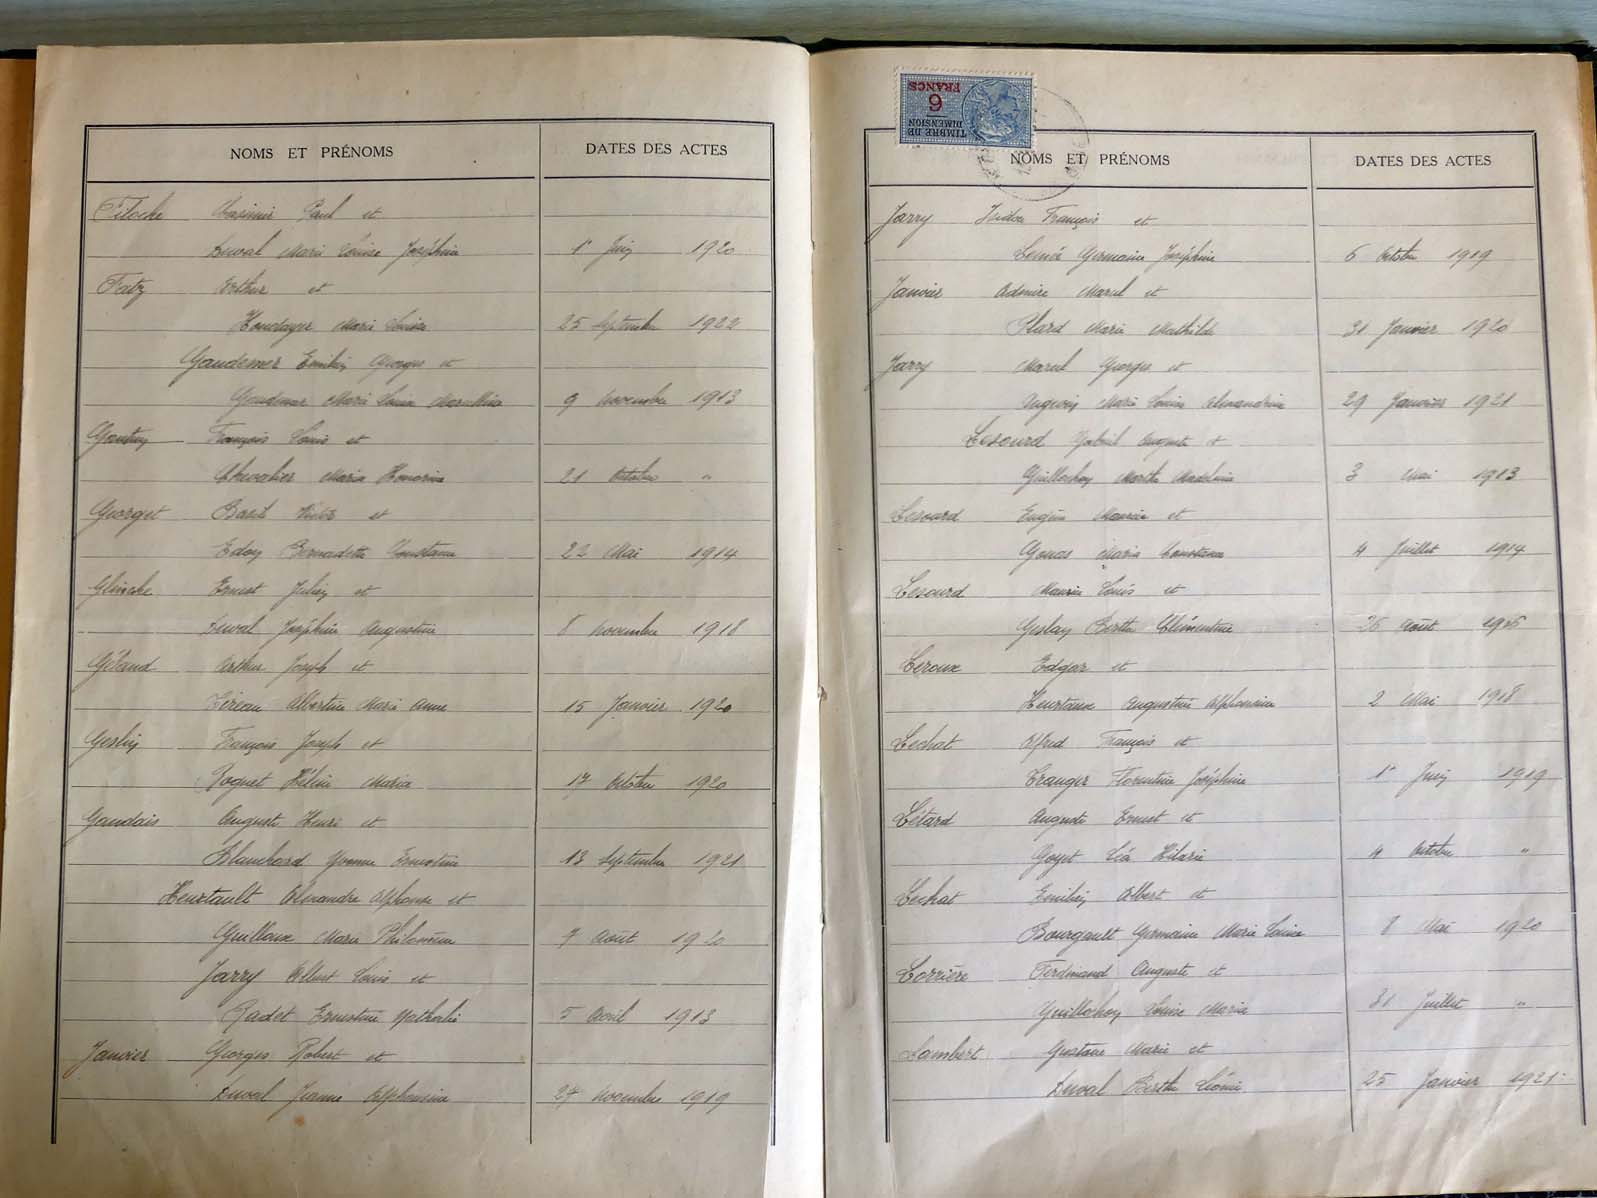 NOMS ET PRÉNOMS DATES DES ACTES
Filoche Casimir Paul et
Duval Marie Louise Joséphine 1er Juin 1920
Fatz Arthur et
Marie Louise 25 Septembre 1922
Gaudemer Emilien Georges et
Gaudemer Marie Louise 9 Novembre 1913
François Louis et
Chevalier Maria Honorine 21 Octobre "
Georget Basile Victor et
Bernadette Constance 22 Mai 1914
Ernest Julien et
Duval Joséphine Augustine 8 Novembre 1918
Arthur Joseph et
Albertine Marie Anne 15 Janvier 1920
Geslin François Joseph et
Poquet Hélène Maria 17 Octobre 1920
Gandais Auguste Henri et
Blanchard Yvonne Ernestine 13 Septembre 1921
Heurtault Alexandre Alphonse et
Guilloux Marie Philomène 9 Août 1920
Jarry Albert Louis et
Ernestine Nathalie 5 Avril 1913
Janvier Georges Robert et
Duval Jeanne Alphonsine 27 Novembre 1919
TIMBRE DE
DIMENSION
6
FRANCS
NOMS ET PRÉNOMS DATES DES ACTES
Jarry Isidore François et
Germaine Joséphine 6 Octobre 1919
Janvier Marcel et
Plard Marie Mathilde 31 Janvier 1920
Jarry Marcel Georges et
Marie Louise Alexandrine 29 Janvier 1921
Lesourd Gabriel Auguste et
Guillochon Marthe Madeleine 3 Mai 1913
Lesourd Eugène Maurice et
Maria Constance 4 Juillet 1914
Lesourd Maurice Louis et
Geslin Berthe Clémentine 26 Août 1916
Leroux Edgar et
Augustine Alphonsine 2 Mai 1918
Lechat Alfred François et
Florentine Joséphine 1er Juin 1919
Létard Auguste Ernest et
Goyet Léa Hilarie 4 Octobre "
Lechat Emilien Albert et
Bourgault Germaine Marie Louise 8 Mai 1920
Lorrière Ferdinand Auguste et
Guillochon Louise Maria 31 Juillet "
Lambert Gustave Marie et
Duval Berthe Léonie 25 Janvier 1921